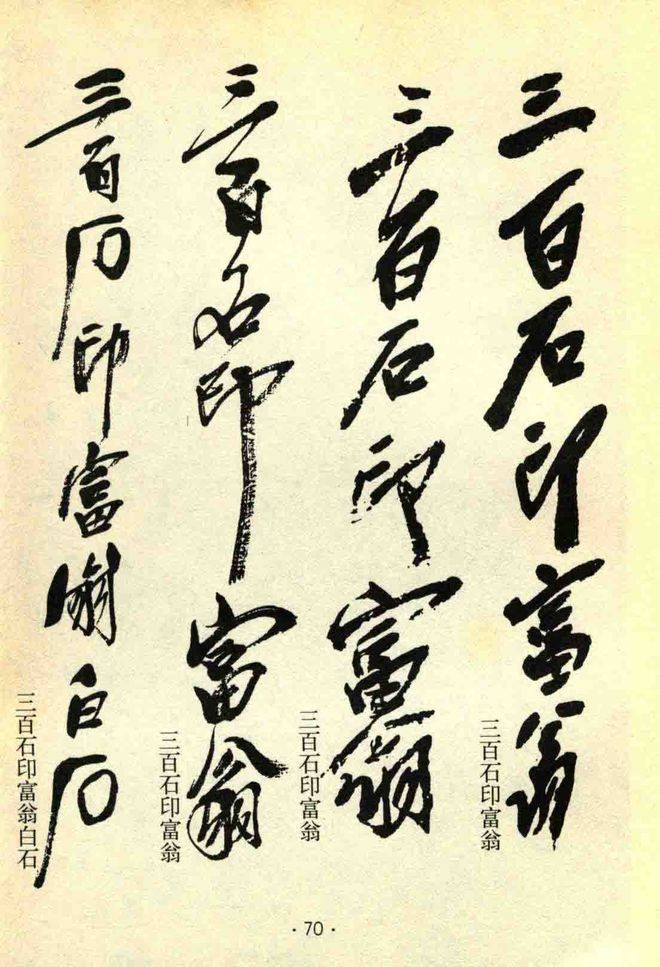 三百石印富翁
三百石印富翁
三百石印富翁
三百石印富翁
三百名印富翁
三百石印富翁
三百石印富翁白石
三百石印富翁白石
·70·